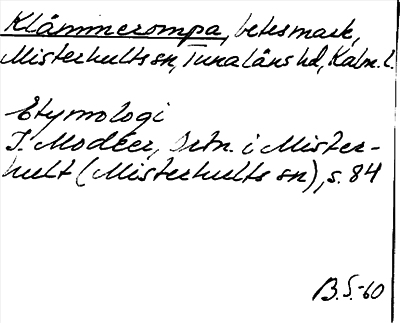 Klämmerompa, betesmark,
Misterhults sn, Tunaläns hd, Kalm. l.
Etymologi
I. Modéer, Ortn. i Mister-
hult (Misterhults sn), s. 84
B.S.-60